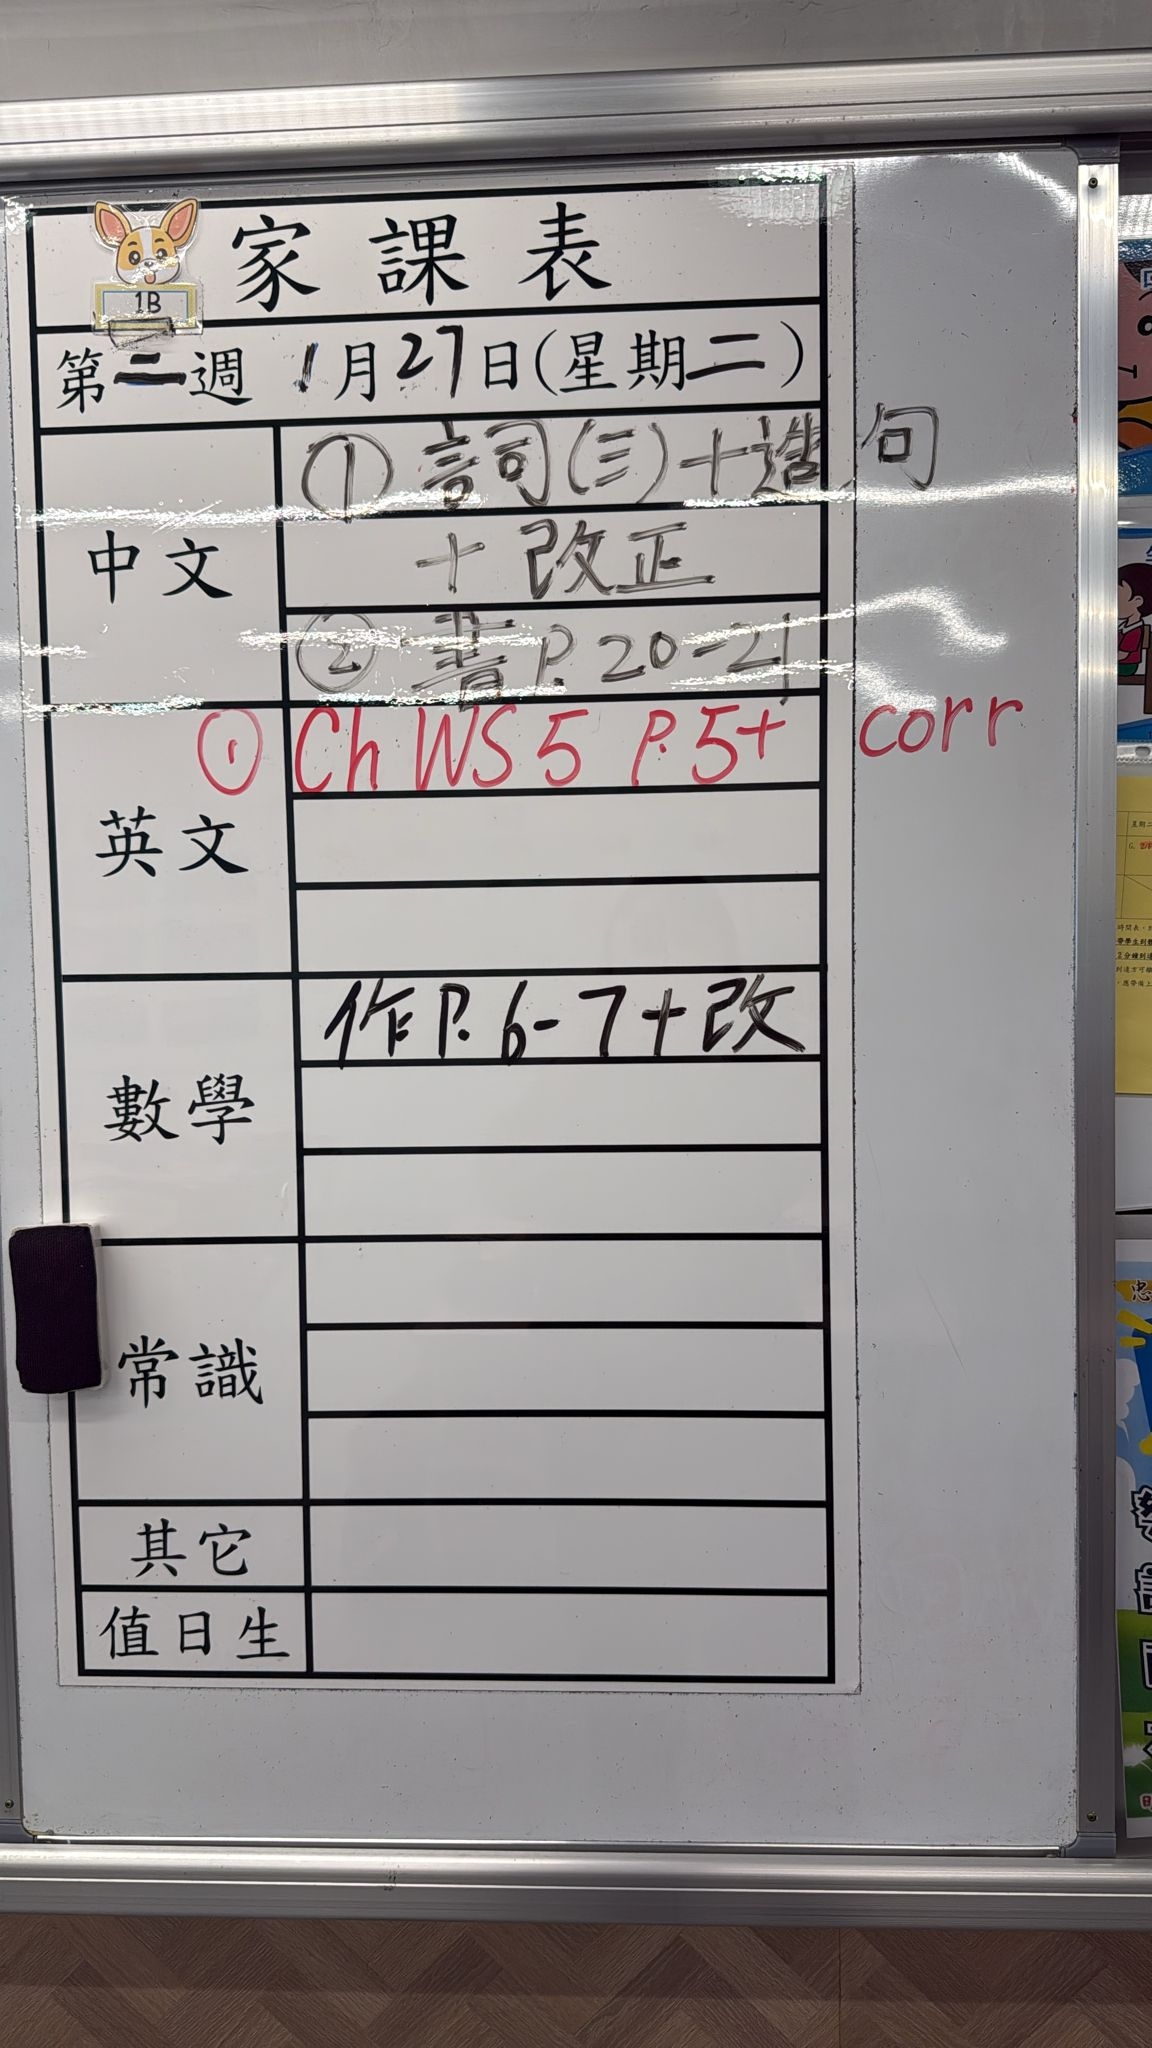 家課表
1B
第二週 1月27日(星期二)
中文
① 詞(三)+造句
+改正
② 書P.20-21
英文
① Ch WS 5 P.5+ corr
數學
作P.6-7+改
常識
其它
值日生